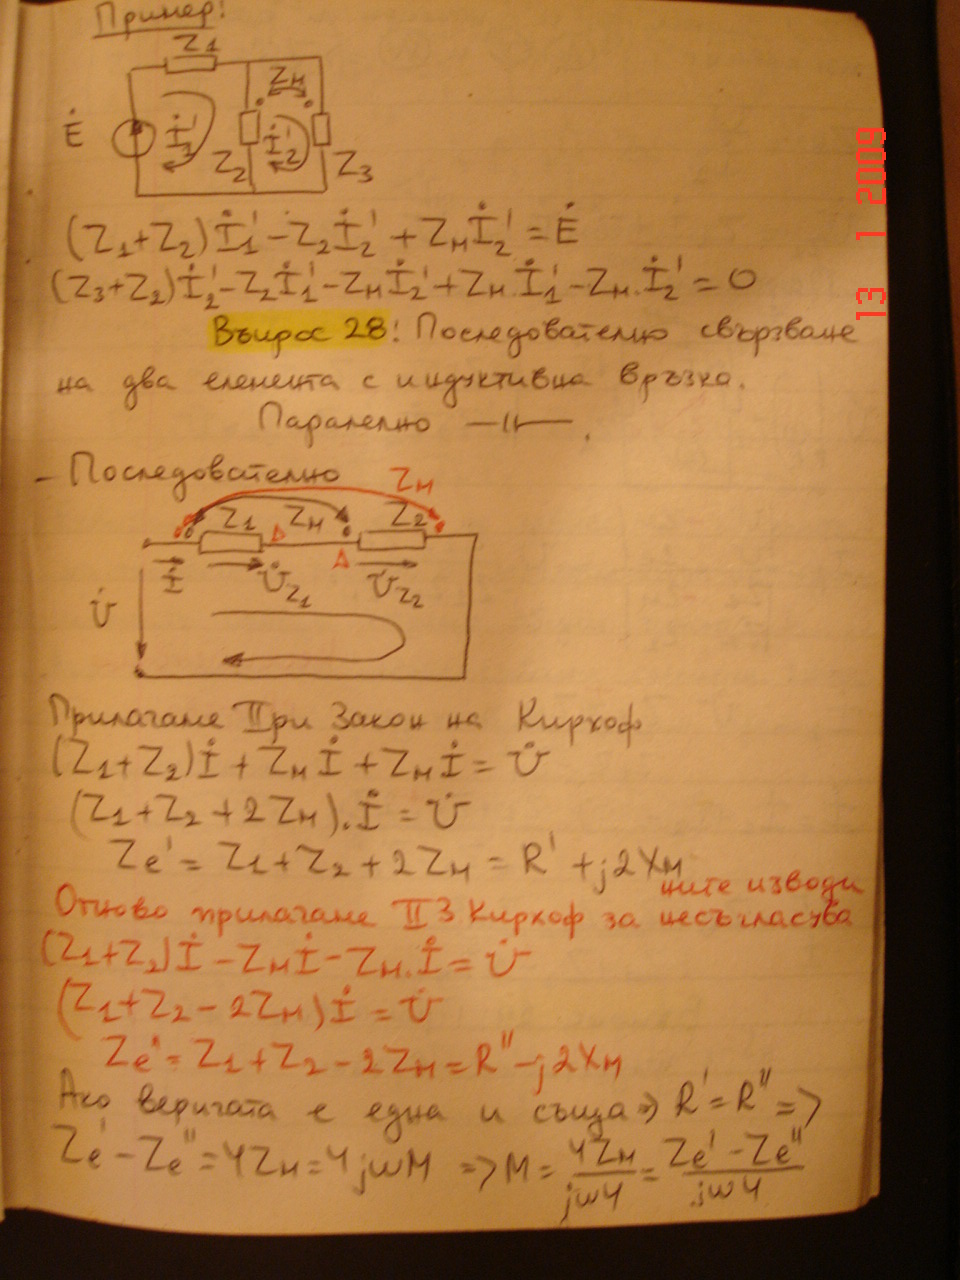 Пример:
Z1
ZM
Ė
İ1'
Z2
İ2'
Z3
(Z1+Z2)İ1'-Z2İ2'+ZMİ2'=Ė
(Z3+Z2)İ2'-Z2İ1'-ZMİ2'+ZM.İ1'-ZM.İ2'=0
13 1 2009
Въпрос 28: Последователно свързване
на два елемента с индуктивна връзка.
Паралелно —||—.
- Последователно
ZM
Z1 ZM Z2
İ U̇Z1 U̇Z2
U̇
Прилагаме IIри Закон на Кирхоф
(Z1+Z2)İ+ZMİ+ZMİ=U̇
(Z1+Z2+2ZM).İ=U̇
Ze'=Z1+Z2+2ZM=R'+j2XM
Отново прилагаме II З Кирхоф за несъгласува
ните изводи
(Z1+Z2)İ-ZMİ-ZM.İ=U̇
(Z1+Z2-2ZM)İ=U̇
Ze"=Z1+Z2-2ZM=R"-j2XM
Ако веригата е една и съща=> R'=R" =>
Ze'-Ze"=4ZM=4jωM => M=4ZM/jω4=Ze'-Ze"/jω4